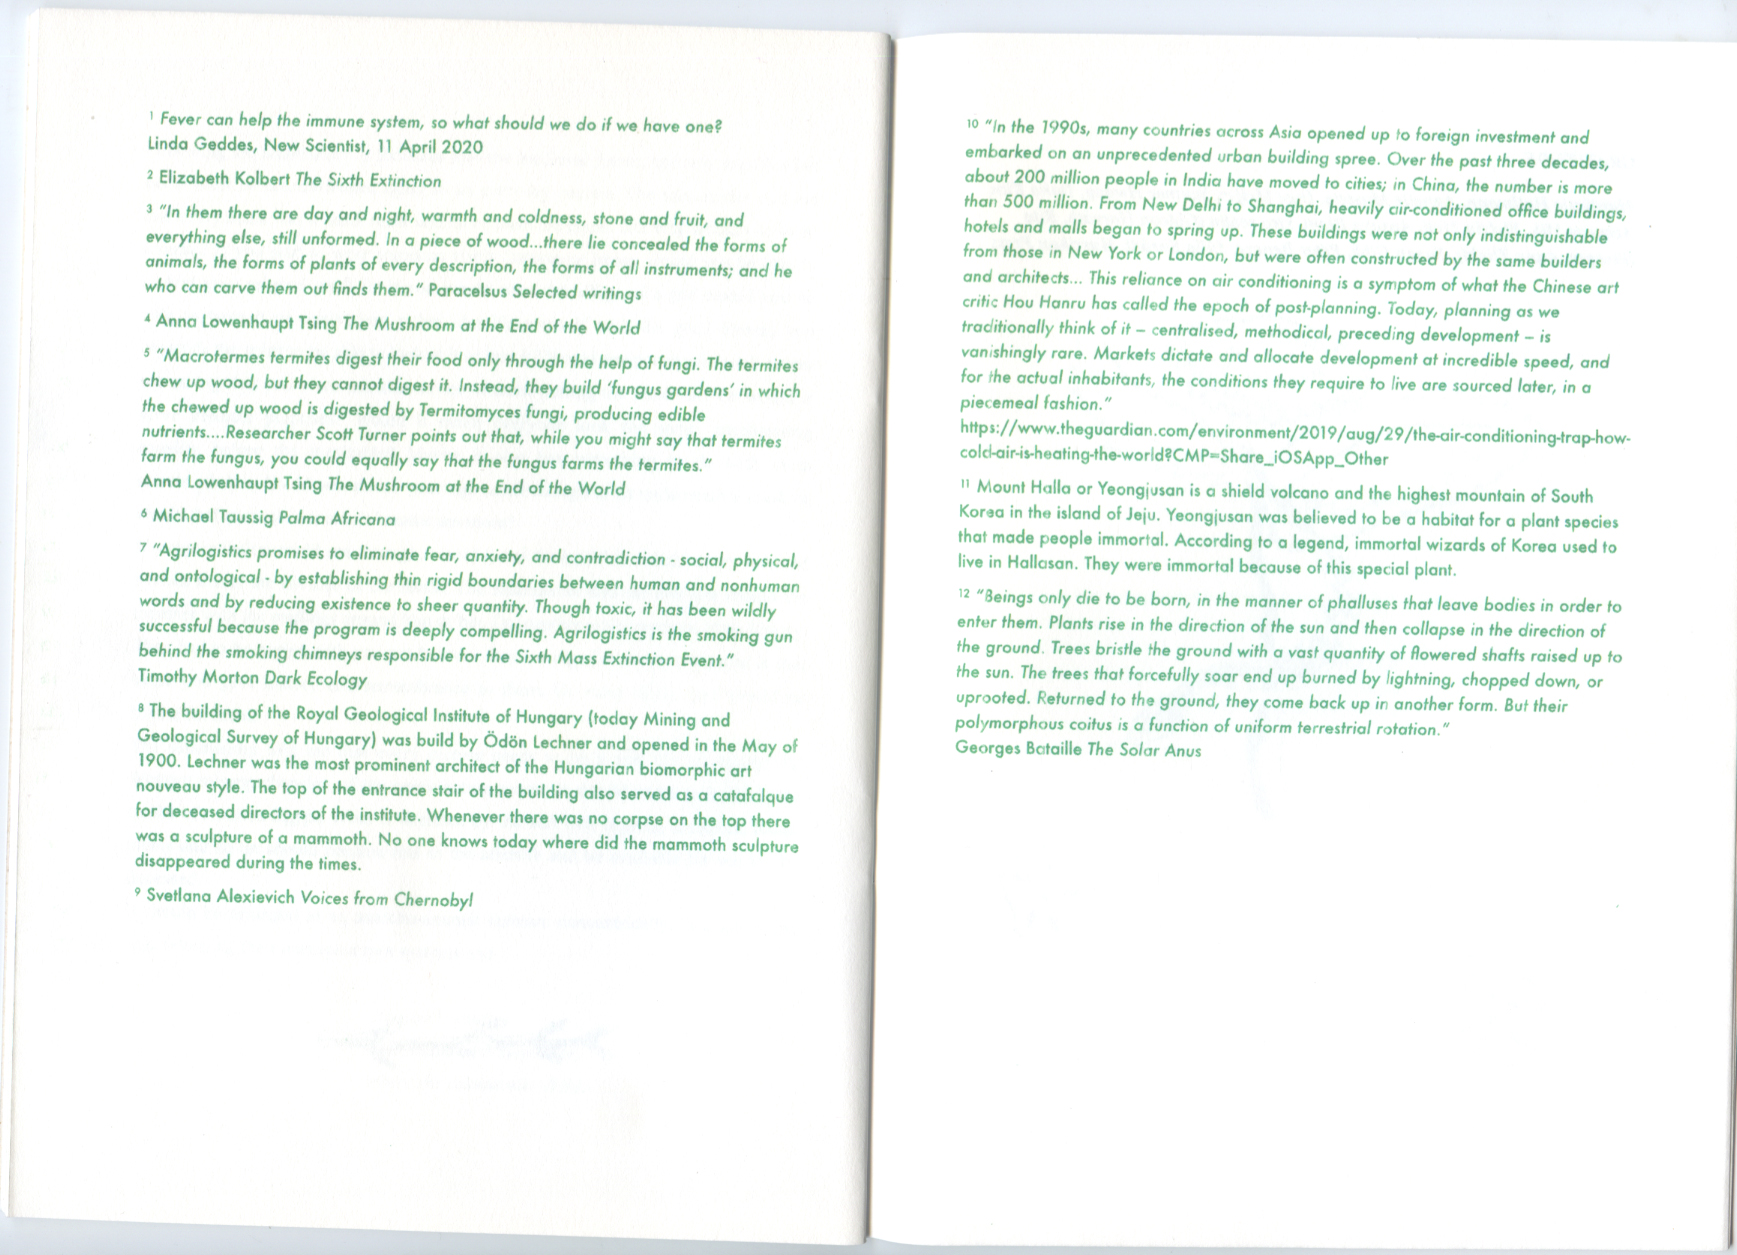 ¹ Fever can help the immune system, so what should we do if we have one?
Linda Geddes, New Scientist, 11 April 2020
² Elizabeth Kolbert The Sixth Extinction
³ "In them there are day and night, warmth and coldness, stone and fruit, and
everything else, still unformed. In a piece of wood...there lie concealed the forms of
animals, the forms of plants of every description, the forms of all instruments; and he
who can carve them out finds them." Paracelsus Selected writings
⁴ Anna Lowenhaupt Tsing The Mushroom at the End of the World
⁵ "Macrotermes termites digest their food only through the help of fungi. The termites
chew up wood, but they cannot digest it. Instead, they build 'fungus gardens' in which
the chewed up wood is digested by Termitomyces fungi, producing edible
nutrients....Researcher Scott Turner points out that, while you might say that termites
farm the fungus, you could equally say that the fungus farms the termites."
Anna Lowenhaupt Tsing The Mushroom at the End of the World
⁶ Michael Taussig Palma Africana
⁷ "Agrilogistics promises to eliminate fear, anxiety, and contradiction - social, physical,
and ontological - by establishing thin rigid boundaries between human and nonhuman
words and by reducing existence to sheer quantity. Though toxic, it has been wildly
successful because the program is deeply compelling. Agrilogistics is the smoking gun
behind the smoking chimneys responsible for the Sixth Mass Extinction Event."
Timothy Morton Dark Ecology
⁸ The building of the Royal Geological Institute of Hungary (today Mining and
Geological Survey of Hungary) was build by Ödön Lechner and opened in the May of
1900. Lechner was the most prominent architect of the Hungarian biomorphic art
nouveau style. The top of the entrance stair of the building also served as a catafalque
for deceased directors of the institute. Whenever there was no corpse on the top there
was a sculpture of a mammoth. No one knows today where did the mammoth sculpture
disappeared during the times.
⁹ Svetlana Alexievich Voices from Chernobyl
¹⁰ "In the 1990s, many countries across Asia opened up to foreign investment and
embarked on an unprecedented urban building spree. Over the past three decades,
about 200 million people in India have moved to cities; in China, the number is more
than 500 million. From New Delhi to Shanghai, heavily air-conditioned office buildings,
hotels and malls began to spring up. These buildings were not only indistinguishable
from those in New York or London, but were often constructed by the same builders
and architects... This reliance on air conditioning is a symptom of what the Chinese art
critic Hou Hanru has called the epoch of post-planning. Today, planning as we
traditionally think of it – centralised, methodical, preceding development – is
vanishingly rare. Markets dictate and allocate development at incredible speed, and
for the actual inhabitants, the conditions they require to live are sourced later, in a
piecemeal fashion."
https://www.theguardian.com/environment/2019/aug/29/the-air-conditioning-trap-how-
cold-air-is-heating-the-world?CMP=Share_iOSApp_Other
¹¹ Mount Halla or Yeongjusan is a shield volcano and the highest mountain of South
Korea in the island of Jeju. Yeongjusan was believed to be a habitat for a plant species
that made people immortal. According to a legend, immortal wizards of Korea used to
live in Hallasan. They were immortal because of this special plant.
¹² "Beings only die to be born, in the manner of phalluses that leave bodies in order to
enter them. Plants rise in the direction of the sun and then collapse in the direction of
the ground. Trees bristle the ground with a vast quantity of flowered shafts raised up to
the sun. The trees that forcefully soar end up burned by lightning, chopped down, or
uprooted. Returned to the ground, they come back up in another form. But their
polymorphous coitus is a function of uniform terrestrial rotation."
Georges Bataille The Solar Anus